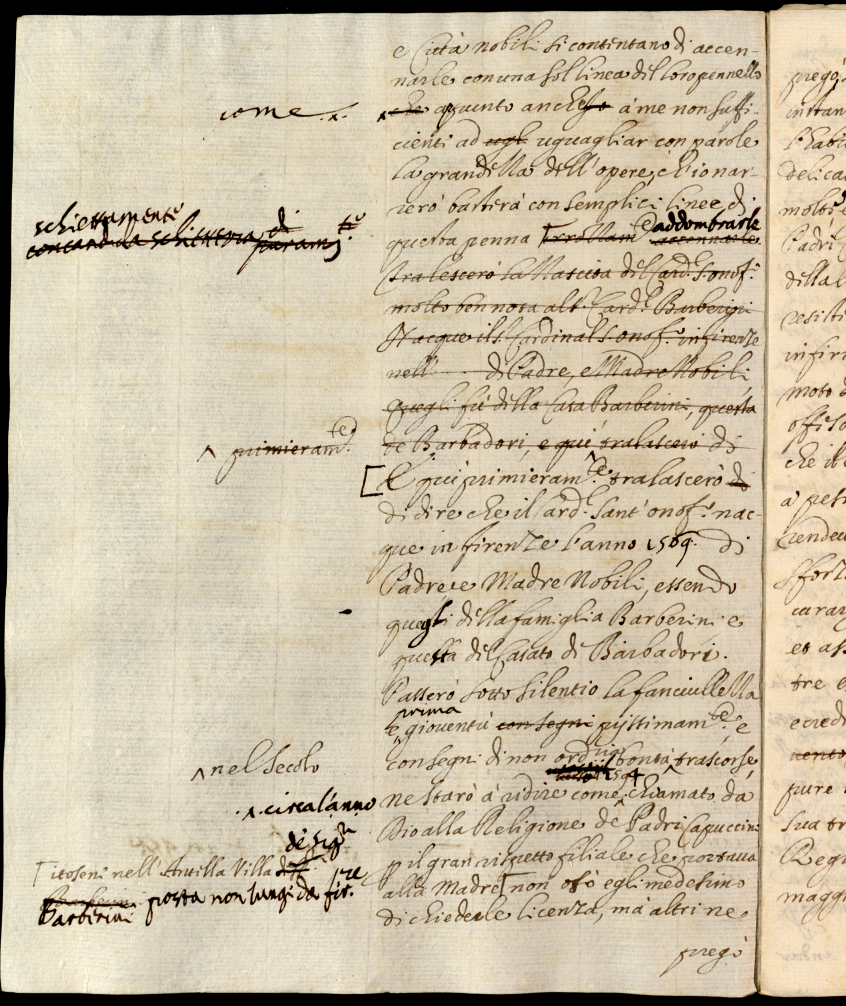 e Città nobili si contentano di accen-
narle con una sol linea del loro pennello
come
che apunto anch'esso à me non suffi-
cienti ad ugl uguagliar con parole
la grandezza dell'opere, ch'io nar-
rerò basterà con semplici linee di
schiettamente
di
questa penna addombrarle
accennarle
tralescerò la Nascita del Card. S. Onof.
molto ben nota al Card. Barberini
Nacque il S. Cardinal S. Onof. in firenze
nell' di Padre, e Madre Nobili
quegli fù della Casa Barberini, questa
de Barbadori, e quì tralascerò di
primieram.te
E quì primieram.te tralascerò di
di dire che il Card. Sant'onof. nac-
que in firenze l'anno 1569. di
Padre, e Madre Nobili, essendo
quegli della famiglia Barberini e
questa del Casato di Barbadori.
Passerò sotto silentio la fanciullezza
prima
e gioventù con segni piissimam.te, e
nel secolo
con segni di non ord bontà trascorse,
circa l'anno
ne starò à ridire come chiamato da
Dio alla Religione de Padri Capuccini
de sig.ri
p il gran rispetto filiale che portava
itosene nell'Antilla Villa
alla Madre non osò egli medesimo
Barberini posta non lungi da fir.ze
di chiederle licenza, mà altri ne
pregò
pregò
instan
l'habi
delica
molti
Padri
della
resisti
infirm
moto
offiso
che il
a pest
rendeu
sforz
curar
et as
tre
e credi
uento
pure
sua tr
Regu
maggi